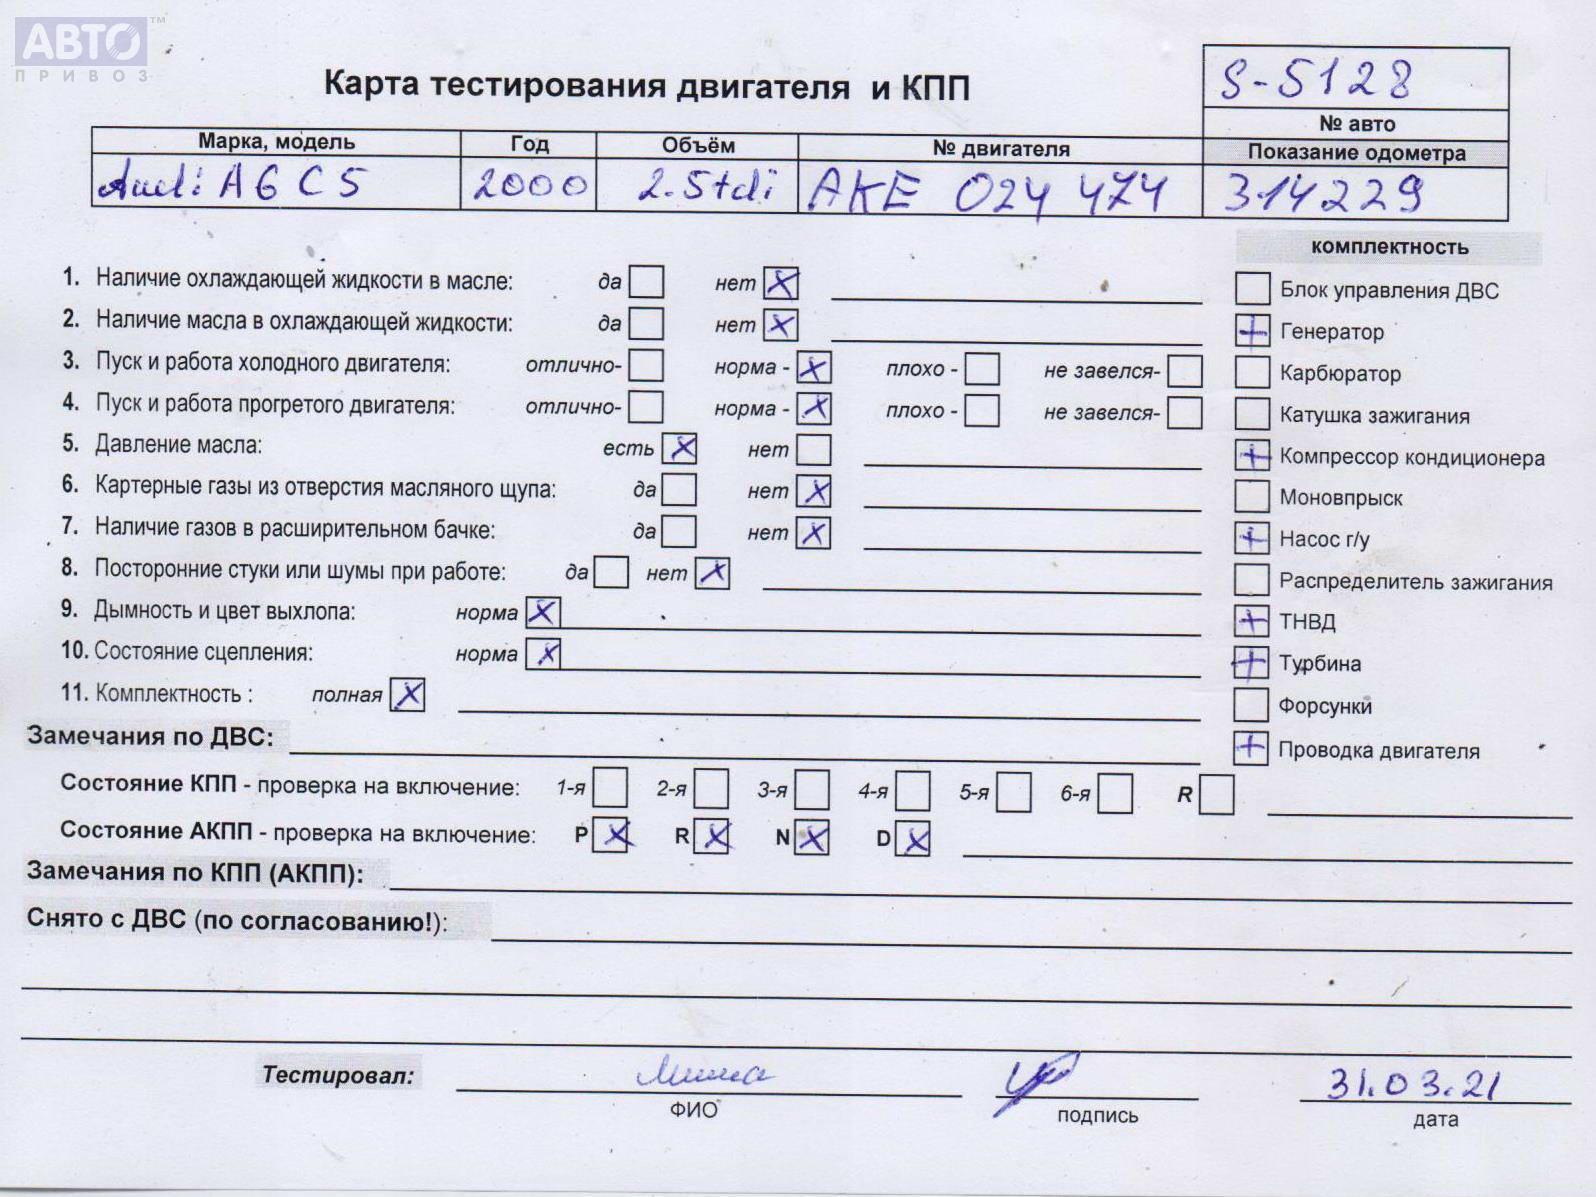 АВТО ™
ПРИВОЗ
Карта тестирования двигателя и КПП
S-5128
№ авто
Марка, модель Год Объём № двигателя Показание одометра
Audi A6 C5 2000 2.5tdi AKE 024 474 314229
комплектность
1. Наличие охлаждающей жидкости в масле: да нет X
Блок управления ДВС
2. Наличие масла в охлаждающей жидкости: да нет X
+ Генератор
3. Пуск и работа холодного двигателя: отлично- норма - X плохо - не завелся-
Карбюратор
4. Пуск и работа прогретого двигателя: отлично- норма - X плохо - не завелся-
Катушка зажигания
5. Давление масла: есть X нет
+ Компрессор кондиционера
6. Картерные газы из отверстия масляного щупа: да нет X
Моновпрыск
7. Наличие газов в расширительном бачке: да нет X
+ Насос г/у
8. Посторонние стуки или шумы при работе: да нет X
Распределитель зажигания
9. Дымность и цвет выхлопа: норма X
+ ТНВД
10. Состояние сцепления: норма X
+ Турбина
11. Комплектность : полная X
Форсунки
Замечания по ДВС:
+ Проводка двигателя
Состояние КПП - проверка на включение: 1-я 2-я 3-я 4-я 5-я 6-я R
Состояние АКПП - проверка на включение: P X R X N X D X
Замечания по КПП (АКПП):
Снято с ДВС (по согласованию!):
Тестировал: Миша 31.03.21
ФИО подпись дата